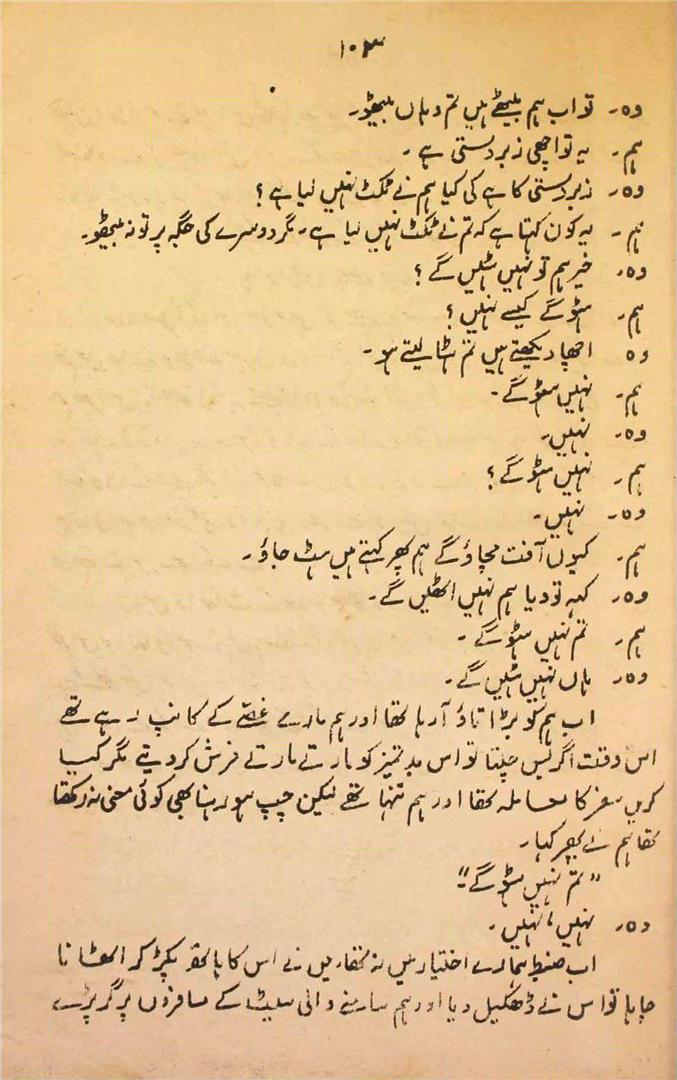 ۱۰۳
وہ۔ تو اب ہم بیٹھے ہیں تم وہاں بیٹھو۔
ہم۔ یہ تو اچھی زبردستی ہے۔
وہ۔ زبردستی کا ہے کی کیا ہم نے ٹکٹ نہیں لیا ہے؟
ہم۔ یہ کون کہتا ہے کہ تم نے ٹکٹ نہیں لیا ہے۔ مگر دوسرے کی جگہ پر تو نہ بیٹھو۔
وہ۔ خیر ہم تو نہیں ہٹیں گے؟
ہم۔ ہٹو گے کیسے نہیں؟
وہ اچھا دیکھتے ہیں تم ہٹا لیتے ہو۔
ہم۔ نہیں ہٹو گے۔
وہ۔ نہیں۔
ہم۔ نہیں ہٹو گے؟
وہ۔ نہیں۔
ہم۔ کیوں آفت مچاؤ گے ہم پھر کہتے ہیں ہٹ جاؤ۔
وہ۔ کہہ تو دیا ہم نہیں اٹھیں گے۔
ہم۔ تم نہیں ہٹو گے۔
وہ۔ ہاں نہیں ہٹیں گے۔
اب ہم کو بڑا تاؤ آ رہا تھا اور ہم مارے غصے کے کانپ رہے تھے
اس وقت اگر بس چلتا تو اس بدتمیز کو مارتے مارتے فرش کر دیتے مگر کیا
کریں سفر کا معاملہ تھا اور ہم تنہا تھے لیکن چپ ہو رہنا بھی کوئی معنی نہ رکھتا
تھا ہم نے پھر کہا۔
"تم نہیں ہٹو گے"۔
وہ۔ نہیں، نہیں۔
اب ضبط ہمارے اختیار میں نہ تھا میں نے اس کا ہاتھ پکڑ کر اٹھانا
چاہا تو اس نے ڈھکیل دیا اور ہم سامنے والی سیٹ کے مسافروں پر گر پڑے